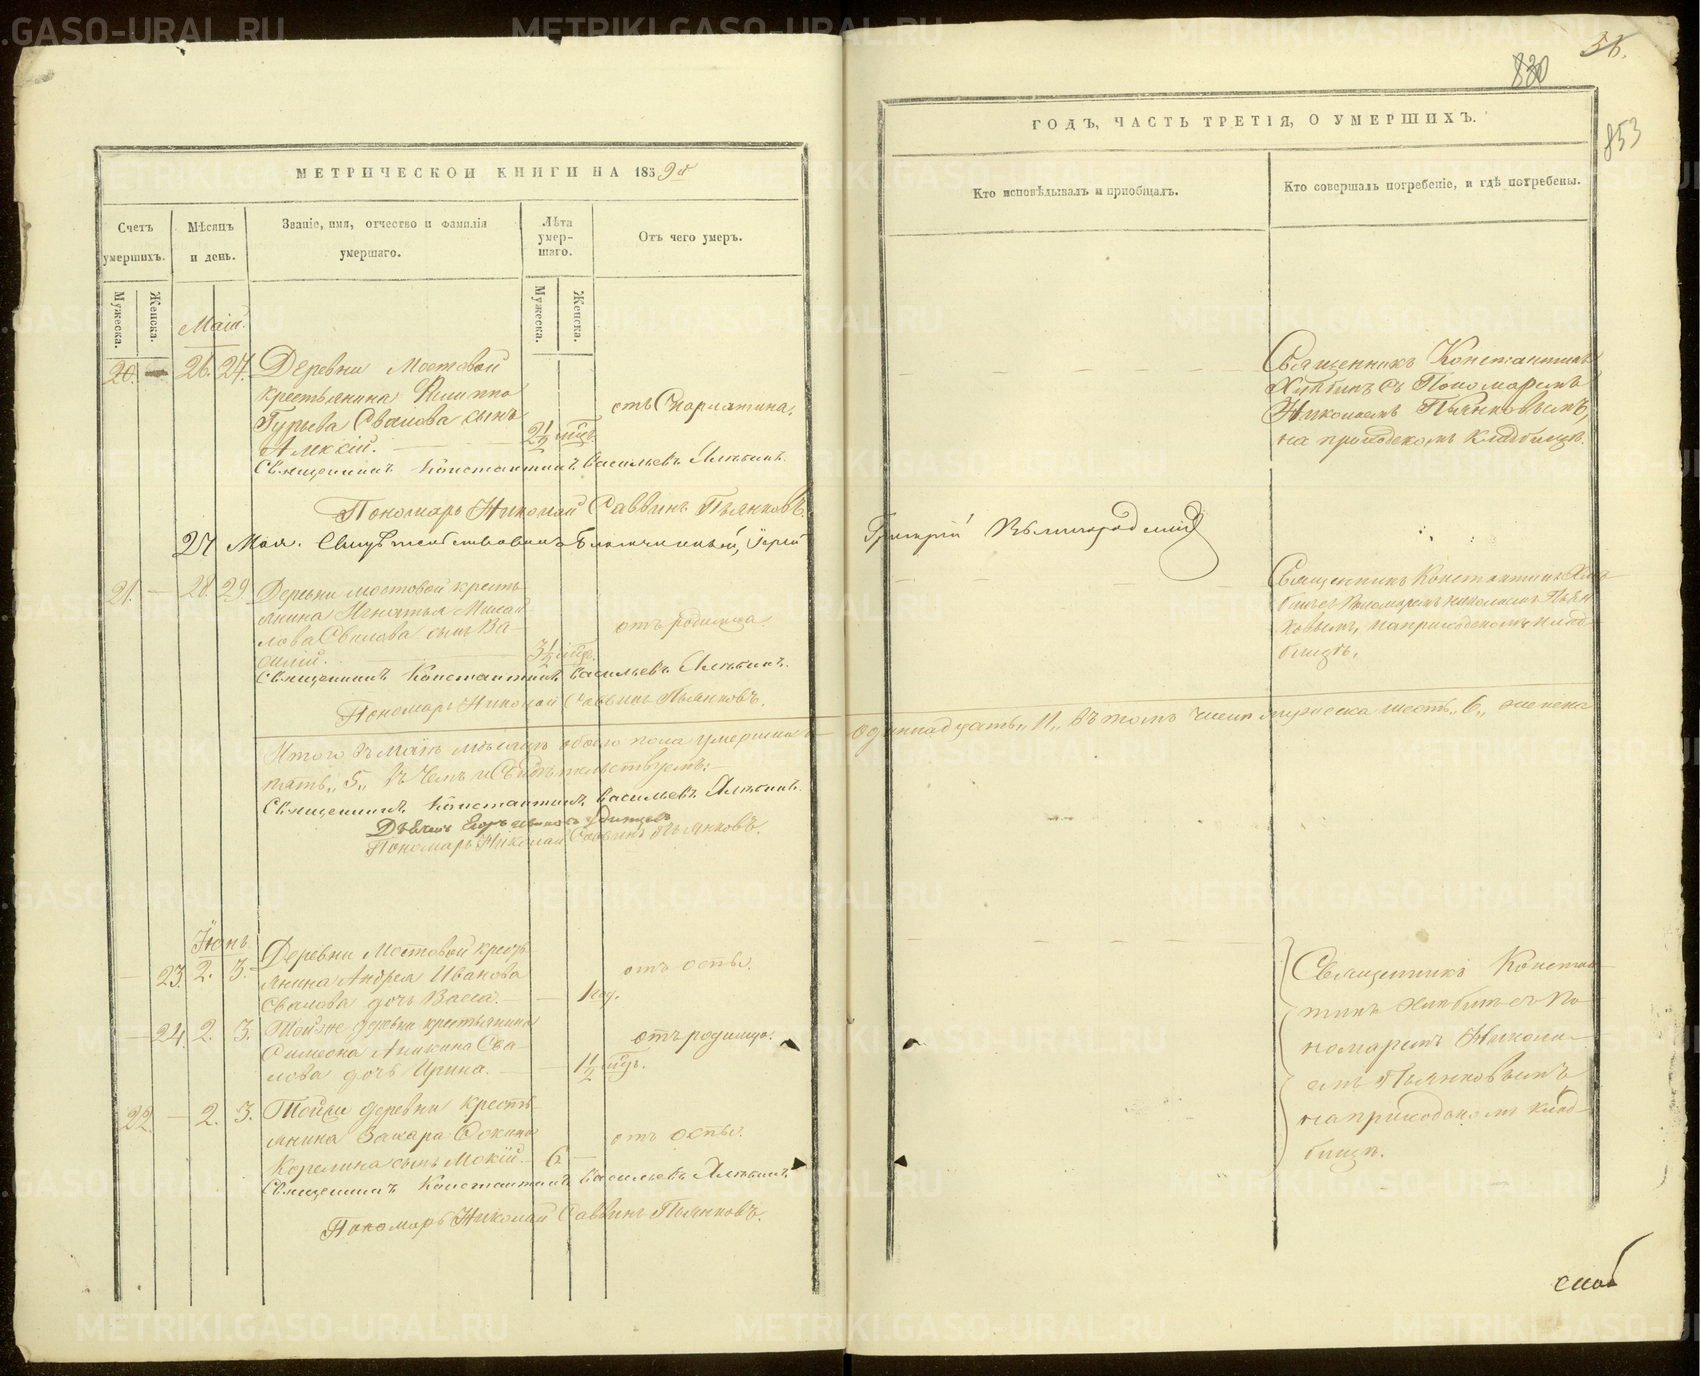 56.
830
853
МЕТРИЧЕСКОЙ КНИГИ НА 1859й
ГОДЪ, ЧАСТЬ ТРЕТІЯ, О УМЕРШИХЪ.
Счетъ умершихъ.
Мѣсяцъ и день.
Званіе, имя, отчество и фамилія умершаго.
Лѣта умер-шаго.
Отъ чего умеръ.
Кто исповѣдывалъ и пріобщалъ.
Кто совершалъ погребеніе, и гдѣ погребены.
Мужеска.
Женска.
Мужеска.
Женска.
Маій.
20. — 26. 27. Деревни Мостовой
крестьянина Филиппа
Гурьева Свалова сынъ
Алексій. 2½ мц.
отъ Скарлатина.
Священникъ Константинъ
съ Пономаремъ
Николаемъ Пьянковымъ,
на приходскомъ кладбищѣ.
Священникъ Константинъ Васильевъ
Пономарь Николай Саввинъ Пьянковъ.
27 Мая. Свидѣтельствовалъ Благочинный, Іерей
Григорій
21. — 28. 29. Деревни Мостовой кресть-
янина Игнатья Михай-
лова Свалова сынъ Ва-
силій. 3½
отъ родимца.
Священникъ Константинъ
съ Пономаремъ Николаемъ Пьян-
ковымъ, на приходскомъ клад-
бищѣ.
Священникъ Константинъ Васильевъ
Пономарь Николай Саввинъ Пьянковъ.
Итого въ Маіѣ мѣсяцѣ обоего пола умершихъ одиннадцать „11„ въ томъ числѣ мужеска шесть „6„ женска
пять „5„ въ чемъ и свидѣтельствуемъ:
Священникъ Константинъ Васильевъ
Пономарь Николай Саввинъ Пьянковъ.
Іюнь.
— 23. 2. 3. Деревни Мостовой кресть-
янина Андрея Иванова
Свалова дочь Васса. — 1 год.
отъ оспы.
— 24. 2. 3. Той же деревни крестьянина
Симеона Аникина Сва-
лова дочь Ирина. — 1½ мц.
отъ родимца.
22. — 2. 3. Той же деревни кресть-
янина Захара Фокина
Корелина сынъ Мокій. 6. —
отъ оспы.
Священникъ Констан-
тинъ съ По-
номаремъ Никола-
емъ Пьянковымъ
на приходскомъ клад-
бищѣ.
Священникъ Константинъ Васильевъ
Пономарь Николай Саввинъ Пьянковъ.
METRIKI.GASO-URAL.RU